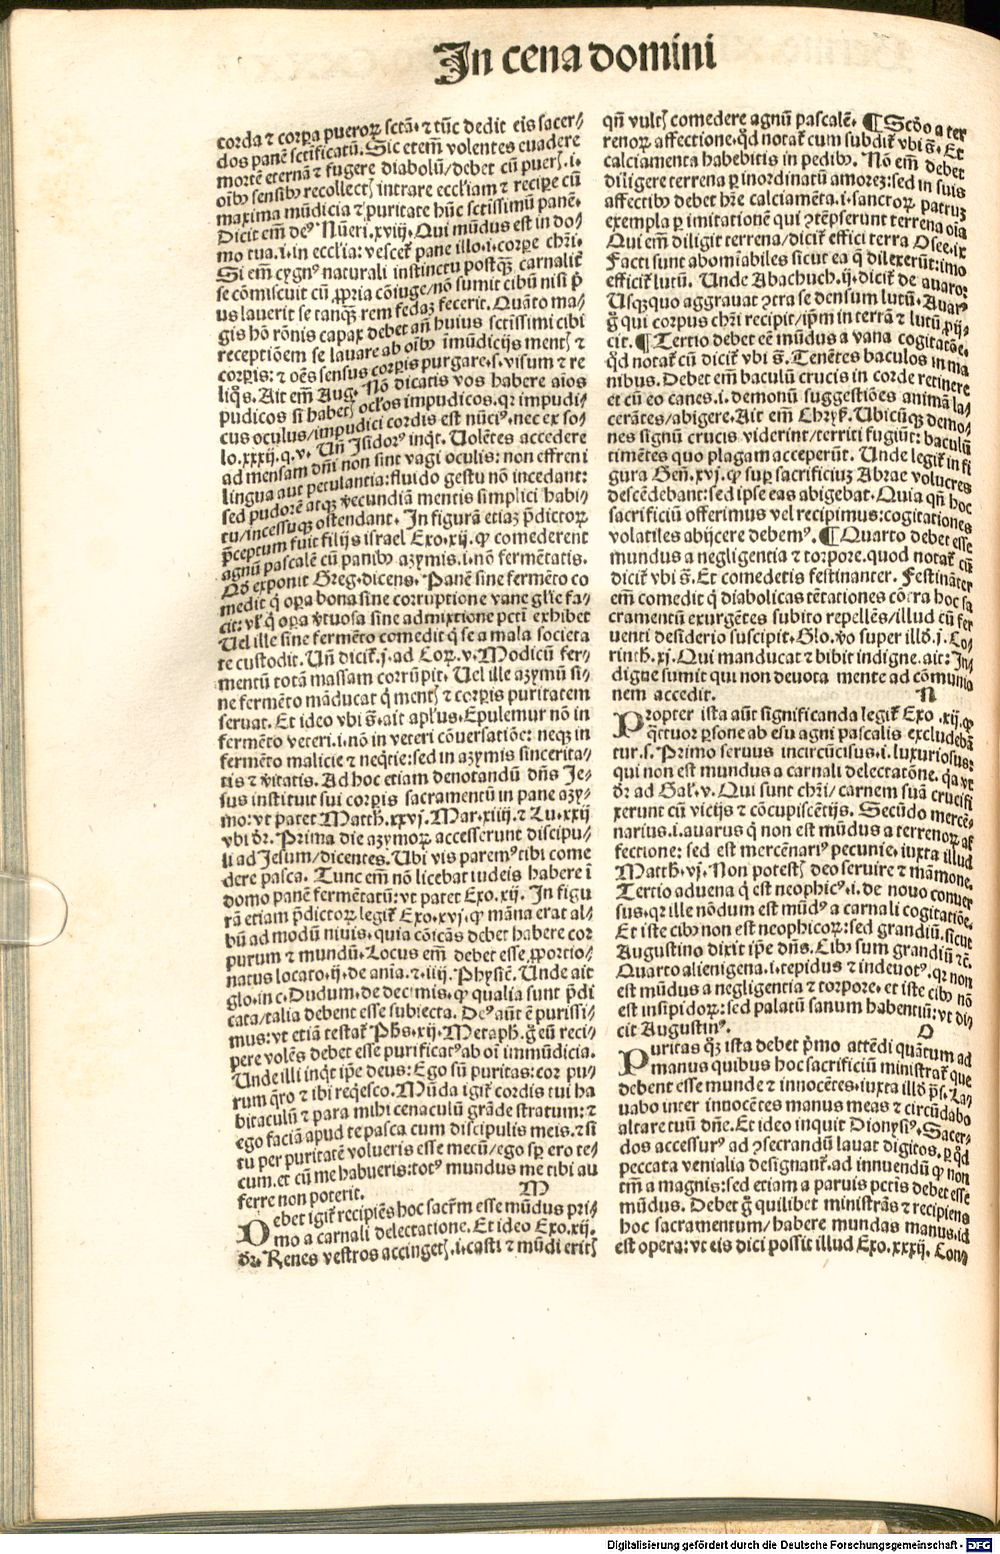 In cena domini
corda ⁊ corꝑa pueroꝝ sctā. ⁊ tūc dedit eis sacer/
dos panē sctificatū. Sic etem̄ volentes euadere
mortē eternā ⁊ fugere diabolū/debet cū pueris .i.
oībꝰ sensibꝰ recollectis intrare eccl'iam ⁊ recipe cū
maxima mūdicia ⁊ puritate hūc sctissimū panē.
Dicit em̄ deꝰ Nūeri .xviij. Qui mūdus est in do/
mo tua .i. in eccl'ia: vescet̄ pane illo .i. corpe chr̄i.
Si em̄ cygnꝰ naturali instinctu postq̄ꝫ carnalit̄
se cōmiscuit cū ꝓpria cōiuge/nō sumit cibū nisi p̄
us lauerit se tanq̄ꝫ rem fedaꝫ fecerit. Quāto ma/
gis hō rōnis capax debet an̄ huius sctissimi cibi
receptiōem se lauare ab oībꝰ īmūdicijs mentis ⁊
corꝑis: ⁊ oēs sensus corꝑis purgare .s. visum ⁊ re
liq̄s. Ait em̄ Aug. Nō dicatis vos habere aīos
pudicos si habetis ocl'os impudicos. qꝛ impudi/
cus oculus/impudici cordis est nūciꝰ. nec ex so/
lo .xxxij. q. v. Un̄ Isidorꝰ inqt̄. Uolētes accedere
ad mensam dn̄i non sint vagi oculis: non effreni
lingua aut petulantia: fluido gestu nō incedant:
sed pudorē atqꝫ verecundiā mentis simplici habi/
tu/incessuqꝫ ostendant. In figurā etiaꝫ p̄dictoꝝ
p̄ceptum fuit filijs israel Exo. xij. ꝙ comederent
agnū pascalē cū panibꝰ azymis .i. nō fermētatis.
Qd̄ exponit Greg. dicens. Panē sine fermēto co
medit q̄ oꝑa bona sine corruptione vane gl'ie fa/
cit: vl' q̄ oꝑa v̄tuosa sine admixtione pctī exhibet
Uel ille sine fermēto comedit q̄ se a mala societa
te custodit. Un̄ dicit̄ .j. ad Coꝝ. v. Modicū fer/
mentū totā massam corrūpit. Uel ille azymū si/
ne fermēto māducat q̄ mentis ⁊ corꝑis puritatem
seruat. Et ideo vbi s̄. ait apl'us. Epulemur nō in
fermēto veteri .i. nō in veteri cōuersatiōe: neqꝫ in
fermēto malicie ⁊ neq̄tie: sed in azymis sincerita/
tis ⁊ v̄itatis. Ad hoc etiam denotandū dn̄s Je/
sus instituit sui corꝑis sacramentū in pane azy/
mo: vt patet Matth̄. xxvj. Mar. xiiij. ⁊ Lu. xxij
vbi dr̄. Prima die azymoꝝ accesserunt discipu/
li ad Jesum/dicentes. Ubi vis paremꝰ tibi come
dere pasca. Tunc em̄ nō licebat iudeis habere ī
domo panē fermētatū: vt patet Exo. xij. In figu
rā etiam p̄dictoꝝ legit̄ Exo. xvj. ꝙ māna erat al/
bū ad modū niuis. quia cōicās debet habere cor
purum ⁊ mundū. Locus em̄ debet esse ꝓportio/
natus locato. ij. de ania. ⁊ iiij. Physic̄. Unde ait
glo. in c. Dudum. de decimis. ꝙ qualia sunt p̄di
cata/talia debent esse subiecta. Deꝰ aūt ē purissi/
mus: vt etiā testat̄ Ph̄s. xij. Metaph̄. g̊ eū reci/
pere volēs debet esse purificatꝰ ab oī immūdicia.
Unde illi inqt̄ ip̄e deus: Ego sū puritas: cor pu/
rum q̄ro ⁊ ibi req̄esco. Mūda igit̄ cordis tui ha
bitaculū ⁊ para mihi cenaculū grāde stratum: ⁊
ego faciā apud te pasca cum discipulis meis. ⁊ si
tu per puritatē volueris esse mecū/ego sꝑ ero te/
cum. et cū me habueris: totꝰ mundus me tibi au
ferre non poterit. M
Debet igit̄ recipiēs hoc sacr̄m esse mūdus pri/
mo a carnali delectatione. Et ideo Exo. xij.
dr̄. Renes vestros accingetis .i. casti ⁊ mūdi eritis
qn̄ vultis comedere agnū pascalē. ¶ Scd̄o a ter
renoꝝ affectione. qd̄ notat̄ cum subdit̄ vbi s̄. Et
calciamenta habebitis in pedibꝰ. Nō em̄ debet
diligere terrena ꝑ inordinatū amoreꝫ: sed in suis
affectibꝰ debet hr̄e calciamēta .i. sanctoꝝ patruꝫ
exempla ꝑ imitationē qui ꝯtēpserunt terrena oīa
Qui em̄ diligit terrena/dicit̄ effici terra Osee. ix
Facti sunt abomīabiles sicut ea q̄ dilexerūt: imo
efficit̄ lutū. Unde Abachuch. ij. dicit̄ de auaro:
Usqꝫquo aggrauat ꝯtra se densum lutū. Auarꝰ
g̊ qui corpus chr̄i recipit/ip̄m in terrā ⁊ lutū ꝓij/
cit. ¶ Tertio debet eē mūdus a vana cogitatōe.
qd̄ notat̄ cū dicit̄ vbi s̄. Tenētes baculos in ma
nibus. Debet em̄ baculū crucis in corde retinere
et cū eo canes .i. demonū suggestiōes animā la/
cerātes/abigere. Ait em̄ Chryſ̄. Ubicūqꝫ demo/
nes signū crucis viderint/territi fugiūt: baculū
timētes quo plagam acceperūt. Unde legit̄ in fi
gura Gen̄. xvj. ꝙ suꝑ sacrificiuꝫ Abrae volucres
descēdebant: sed ipse eas abigebat. Quia qn̄ hoc
sacrificiū offerimus vel recipimus: cogitationes
volatiles abijcere debemꝰ. ¶ Quarto debet esse
mundus a negligentia ⁊ torpore. quod notat̄ cū
dicit̄ vbi s̄. Et comedetis festinanter. Festināter
em̄ comedit q̄ diabolicas tētationes cōtra hoc sa
cramentū exurgētes subito repellēs/illud cū fer
uenti desiderio suscipit. Glo. v̄o super illd̄ .j. Co/
rinth̄. xj. Qui manducat ⁊ bibit indigne. ait: In/
digne sumit qui non deuota mente ad cōmunio
nem accedit. N
Propter ista aūt significanda legit̄ Exo. xij. ꝙ
q̄ttuor ꝑsone ab esu agni pascalis excludebā
tur .s. Primo seruus incircūcisus .i. luxuriosus:
qui non est mundus a carnali delectatōne. q̄a vt
dr̄ ad Gal'. v. Qui sunt chr̄i/carnem suā crucifi
xerunt cū vicijs ⁊ cōcupiscētijs. Secūdo mercē/
narius .i. auarus q̄ non est mūdus a terrenoꝝ af
fectione: sed est mercēnariꝰ pecunie. iuxta illud
Matth̄. vj. Non potestis deo seruire ⁊ māmone.
Tertio aduena q̄ est neophicꝰ .i. de nouo conuer
sus. qꝛ ille nōdum est mūdꝰ a carnali cogitatiōe.
Et iste cibꝰ non est neophicoꝝ: sed grandiū. sicut
Augustino dixit ip̄e dn̄s. Cibꝰ sum grandiū ⁊c̄.
Quarto alienigena .i. tepidus ⁊ indeuotꝰ. qꝛ non
est mūdus a negligentia ⁊ torpore. et iste cibꝰ nō
est insipidoꝝ: sed palatū sanum habentiū: vt di/
cit Augustinꝰ. O
Puritas q̊ꝫ ista debet p̄mo attēdi quātum ad
manus quibus hoc sacrificiū ministrat̄ que
debent esse munde ⁊ innocētes. iuxta illd̄ p̄s. La/
uabo inter innocētes manus meas ⁊ circūdabo
altare tuū dn̄e. Et ideo inquit Dionysiꝰ. Sacer/
dos accessurꝰ ad ꝯsecrandū lauat digitos. ꝑ qd̄
peccata venialia designant̄. ad innuendū ꝙ non
tm̄ a magnis: sed etiam a paruis pctīs debet esse
mūdus. Debet g̊ quilibet ministrās ⁊ recipiens
hoc sacramentum/habere mundas manus .id
est opera: vt eis dici possit illud Exo. xxxij. Con/
Digitalisierung gefördert durch die Deutsche Forschungsgemeinschaft - DFG